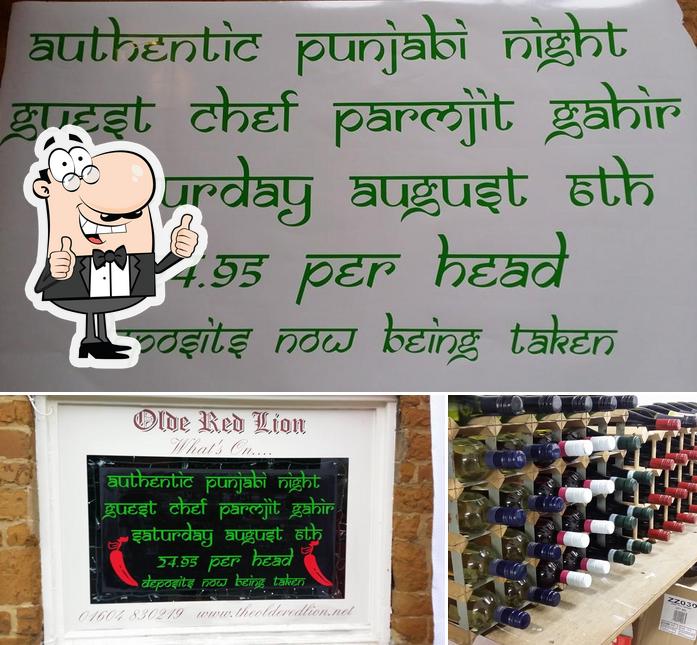 authentic punjabi night
guest chef parmjit gahir
urday august 6th
4.95 per head
posits now being taken
Olde Red Lion
What's On....
authentic punjabi night
guest chef parmjit gahir
saturday august 6th
24.95 per head
deposits now being taken
01604 830219 www.theolderedlion.net
ZZ030